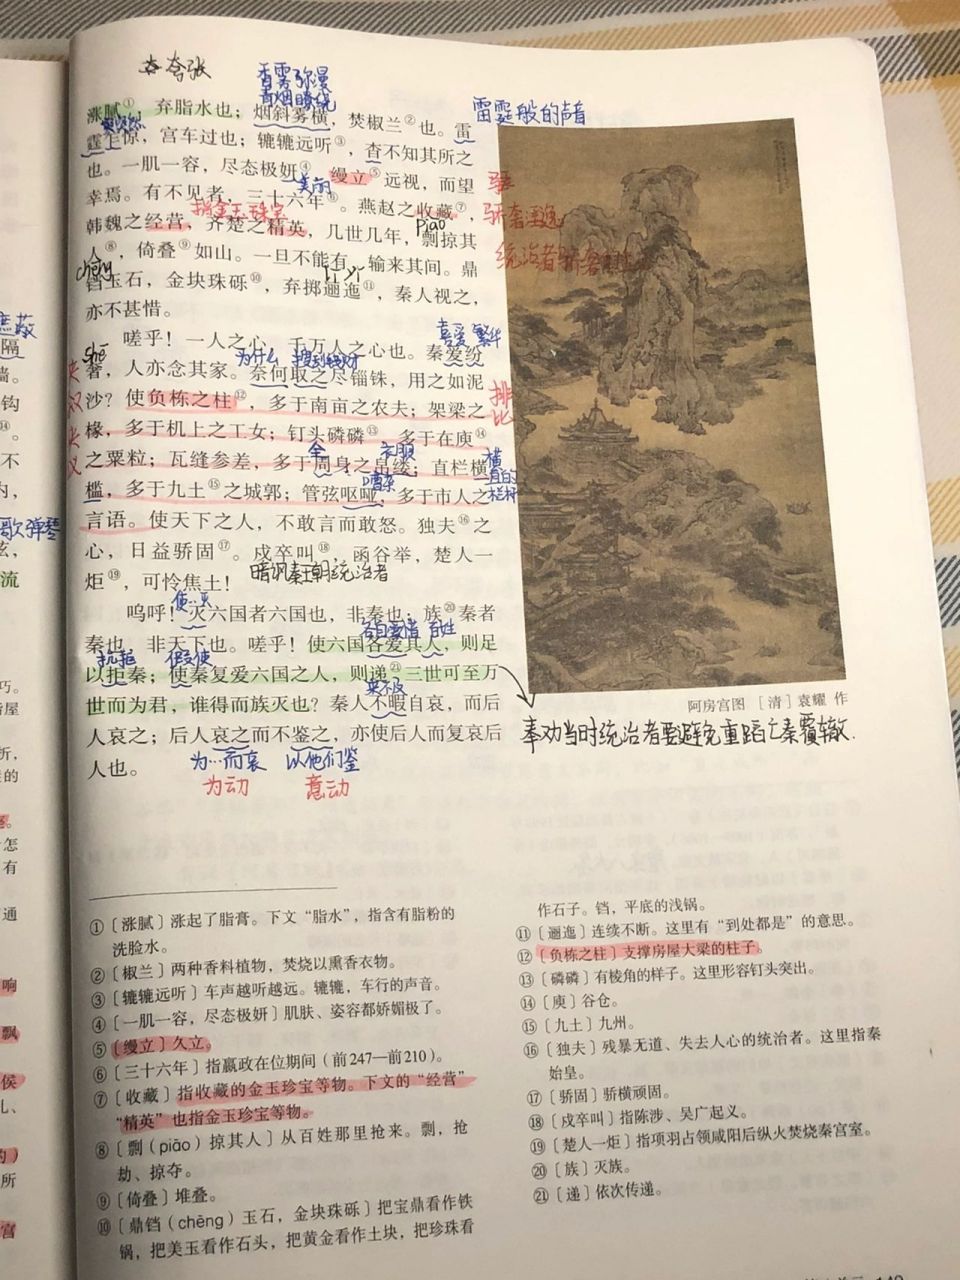 夸张
香雾弥漫
青烟缭绕
涨腻①，弃脂水也；烟斜雾横，焚椒兰②也。雷
雷霆般的声音
霆乍惊，宫车过也；辘辘远听③，杳不知其所之
也。一肌一容，尽态极妍④，缦立⑤远视，而望
美丽
幸焉。有不见者，三十六年⑥。燕赵之收藏⑦，
指金玉珠宝
骄奢淫逸
韩魏之经营，齐楚之精英，几世几年，剽掠其
piāo
人⑧，倚叠⑨如山。一旦不能有，输来其间。鼎
chēng
lǐ yǐ
铛玉石，金块珠砾⑩，弃掷逦迤⑪，秦人视之，
亦不甚惜。
嗟乎！一人之心，千万人之心也。秦爱纷
喜爱 繁华
shē
为什么
奢，人亦念其家。奈何取之尽锱铢，用之如泥
沙？使负栋之柱⑫，多于南亩之农夫；架梁之
排比
椽，多于机上之工女；钉头磷磷⑬，多于在庾⑭
全 衣服
之粟粒；瓦缝参差，多于周身之帛缕；直栏横
嘈杂
槛，多于九土⑮之城郭；管弦呕哑，多于市人之
言语。使天下之人，不敢言而敢怒。独夫⑯之
心，日益骄固⑰。戍卒叫⑱，函谷举，楚人一
炬⑲，可怜焦土！
暗讽秦王朝统治者
使…灭
呜呼！灭六国者六国也，非秦也；族⑳秦者
秦也，非天下也。嗟乎！使六国各爱其人，则足
各自爱惜 百姓
抗拒 假使
以拒秦；使秦复爱六国之人，则递㉑三世可至万
来不及
世而为君，谁得而族灭也？秦人不暇自哀，而后
人哀之；后人哀之而不鉴之，亦使后人而复哀后
人也。
为…而哀 以他们鉴
为动 意动
阿房宫图 ［清］袁耀 作
奉劝当时统治者要避免重蹈亡秦覆辙.
①〔涨腻〕涨起了脂膏。下文“脂水”，指含有脂粉的
洗脸水。
②〔椒兰〕两种香料植物，焚烧以熏香衣物。
③〔辘辘远听〕车声越听越远。辘辘，车行的声音。
④〔一肌一容，尽态极妍〕肌肤、姿容都娇媚极了。
⑤〔缦立〕久立。
⑥〔三十六年〕指嬴政在位期间（前247—前210）。
⑦〔收藏〕指收藏的金玉珍宝等物。下文的“经营”
“精英”也指金玉珍宝等物。
⑧〔剽（piāo）掠其人〕从百姓那里抢来。剽，抢
劫、掠夺。
⑨〔倚叠〕堆叠。
⑩〔鼎铛（chēng）玉石，金块珠砾〕把宝鼎看作铁
锅，把美玉看作石头，把黄金看作土块，把珍珠看
作石子。铛，平底的浅锅。
⑪〔逦迤〕连续不断。这里有“到处都是”的意思。
⑫〔负栋之柱〕支撑房屋大梁的柱子。
⑬〔磷磷〕有棱角的样子。这里形容钉头突出。
⑭〔庾〕谷仓。
⑮〔九土〕九州。
⑯〔独夫〕残暴无道、失去人心的统治者。这里指秦
始皇。
⑰〔骄固〕骄横顽固。
⑱〔戍卒叫〕指陈涉、吴广起义。
⑲〔楚人一炬〕指项羽占领咸阳后纵火焚烧秦宫室。
⑳〔族〕灭族。
㉑〔递〕依次传递。